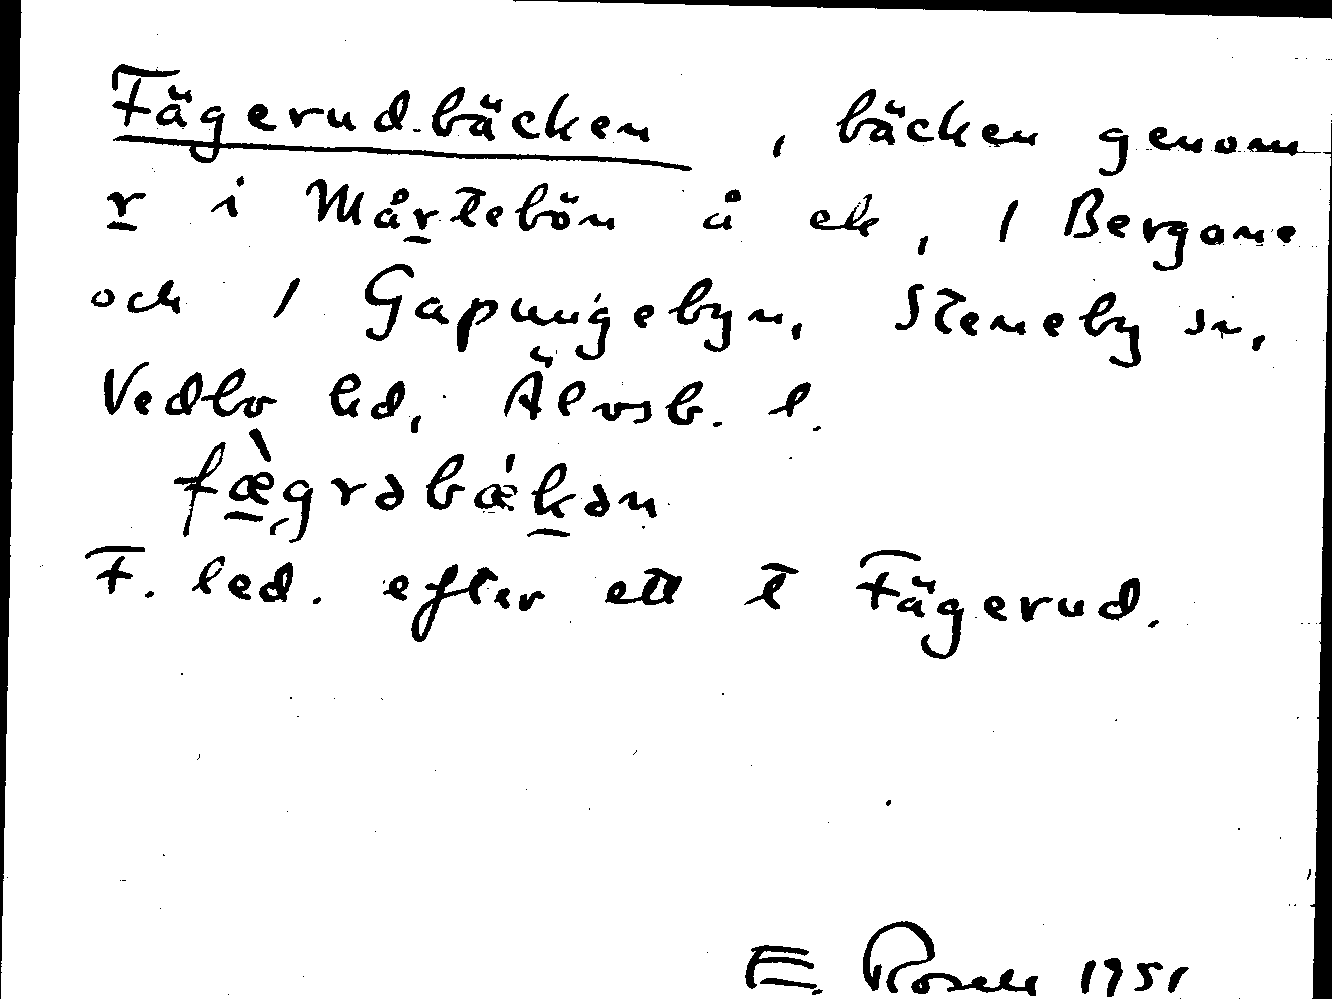 Fägerud-bäcken, bäcken genom
r i Mårtebön å ek, 1 Bergane
och 1 Gapungebyn, Steneby sn,
Vedbo hd, Älvsb. l.
fæ̀grəbǽkən
F. led. efter ett t Fägerud.
E. Rosell 1951